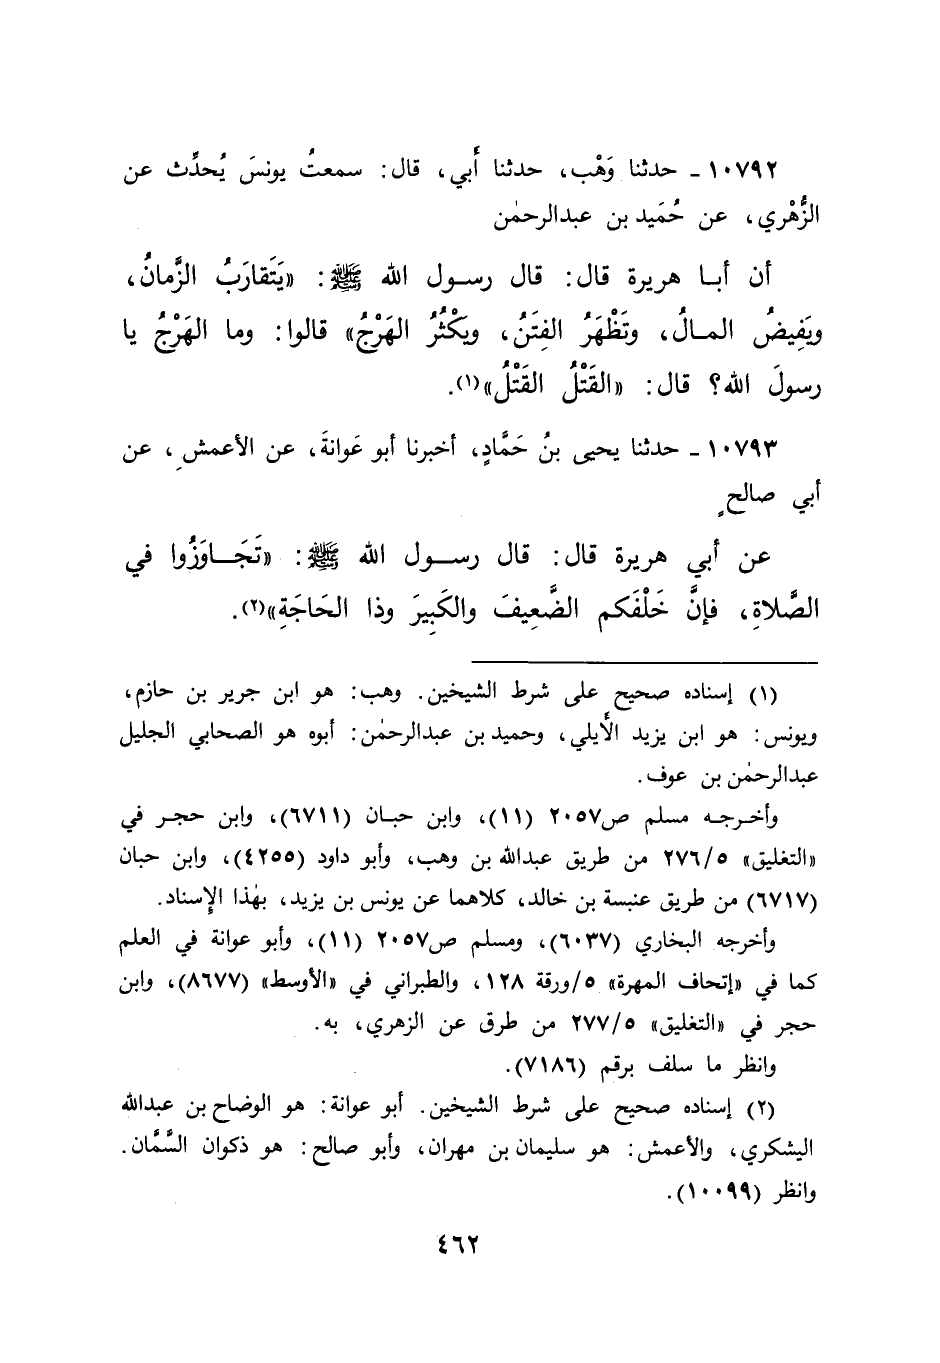 ١٠٧٩٢ - حدثنا وَهْب، حدثنا أَبي، قال: سمعتُ يونسَ يُحدِّث عن
الزُّهْري، عن حُمَيد بن عبدالرحمٰن
أن أبا هريرة قال: قال رسول الله ﷺ: «يَتَقارَبُ الزَّمانُ،
ويَفِيضُ المالُ، وتَظْهَرُ الفِتَنُ، ويَكْثُرُ الهَرْجُ» قالوا: وما الهَرْجُ يا
رسولَ الله؟ قال: «القَتْلُ القَتْلُ»(١).
١٠٧٩٣ - حدثنا يحيى بنُ حَمَّادٍ، أخبرنا أبو عَوانةَ، عن الأعمشِ، عن
أبي صالحٍ
عن أبي هريرة قال: قال رسول الله ﷺ: «تَجَاوَزُوا في
الصَّلاةِ، فإنَّ خَلْفَكم الضَّعِيفَ والكَبِيرَ وذا الحَاجَةِ»(٢).
(١) إسناده صحيح على شرط الشيخين. وهب: هو ابن جرير بن حازم،
ويونس: هو ابن يزيد الأَيلي، وحميد بن عبدالرحمٰن: أبوه هو الصحابي الجليل
عبدالرحمٰن بن عوف.
وأخرجه مسلم ص٢٠٥٧ (١١)، وابن حبان (٦٧١١)، وابن حجر في
«التغليق» ٢٧٦/٥ من طريق عبدالله بن وهب، وأبو داود (٤٢٥٥)، وابن حبان
(٦٧١٧) من طريق عنبسة بن خالد، كلاهما عن يونس بن يزيد، بهٰذا الإسناد.
وأخرجه البخاري (٦٠٣٧)، ومسلم ص٢٠٥٧ (١١)، وأبو عوانة في العلم
كما في «إتحاف المهرة» ٥/ورقة ١٢٨، والطبراني في «الأوسط» (٨٦٧٧)، وابن
حجر في «التغليق» ٢٧٧/٥ من طرق عن الزهري، به.
وانظر ما سلف برقم (٧١٨٦).
(٢) إسناده صحيح على شرط الشيخين. أبو عوانة: هو الوضاح بن عبدالله
اليشكري، والأعمش: هو سليمان بن مهران، وأبو صالح: هو ذكوان السَّمَّان.
وانظر (١٠٠٩٩).
٤٦٢